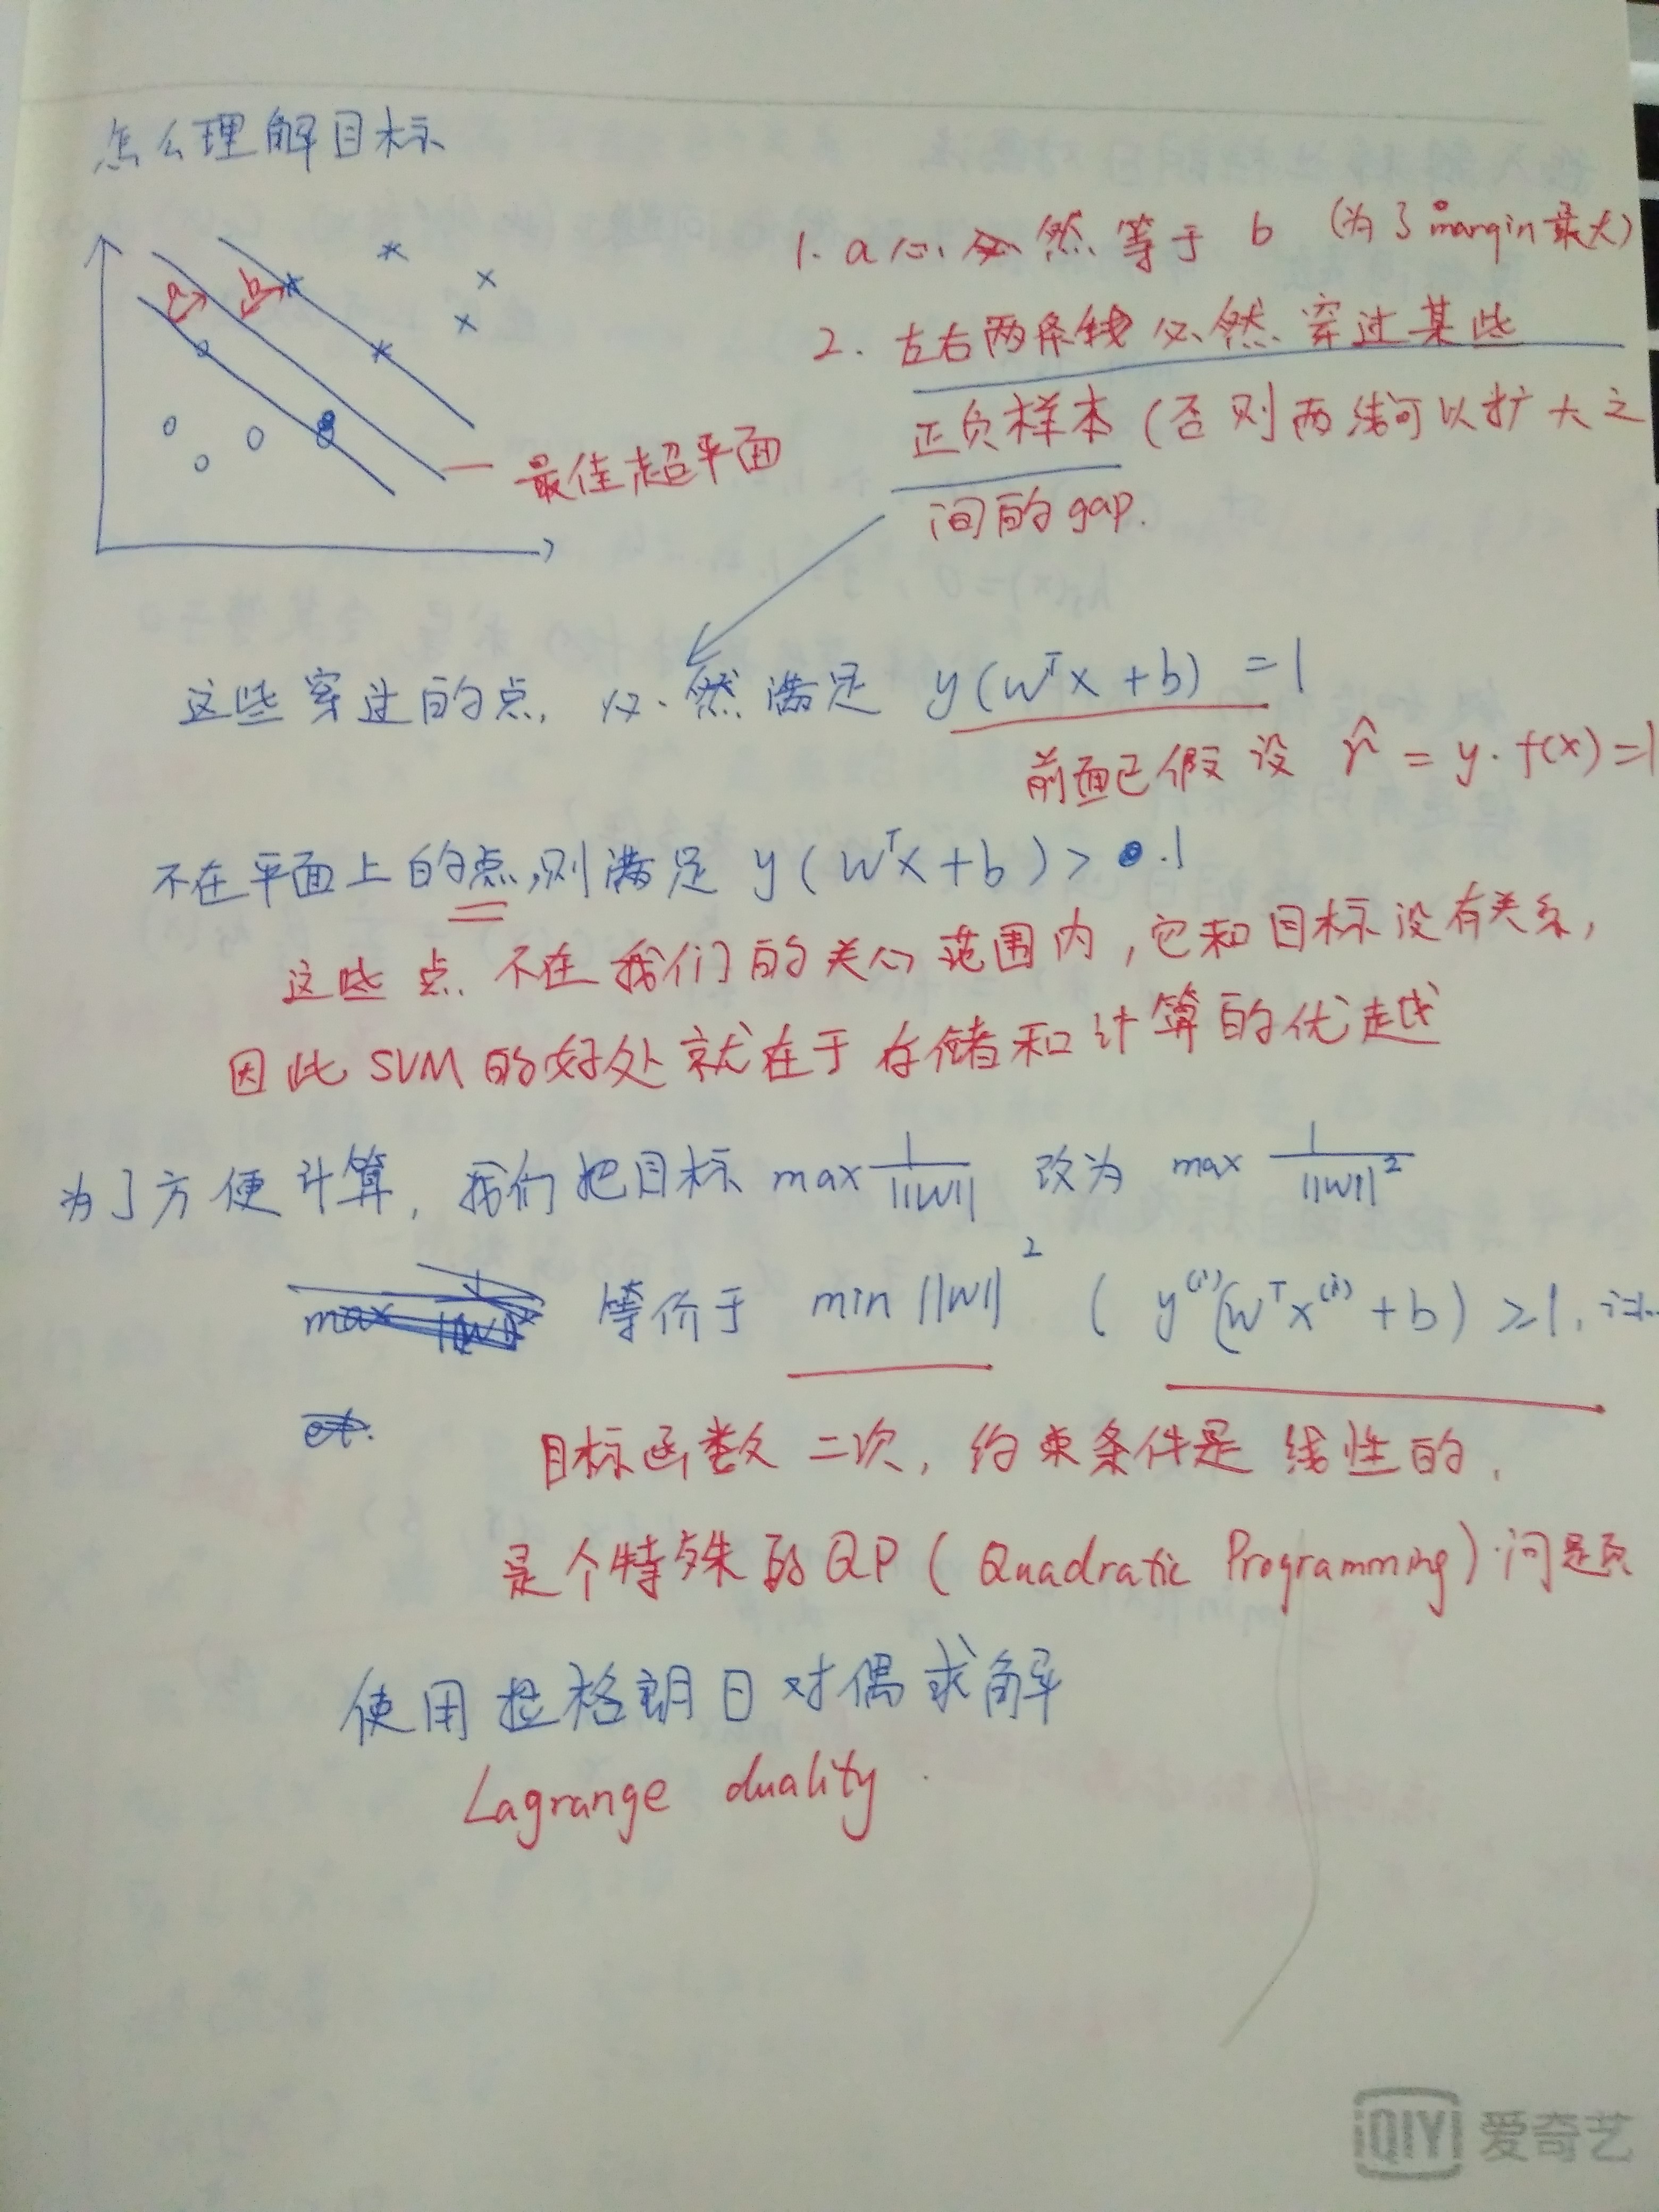 怎么理解目标
1. a 必然等于 b (为了margin最大)
2. 左右两条线必然穿过某些
正负样本(否则两线可以扩大之
间的gap.
a
b
最佳超平面
这些穿过的点, 必然满足 y(wᵀx+b) =1
前面已假设 r̂ = y·f(x)=1
不在平面上的点,则满足 y(wᵀx+b)>1
这些点不在我们的关心范围内,它和目标没有关系,
因此SVM的好处就在于存储和计算的优越
为了方便计算, 我们把目标 max 1/||w|| 改为 max 1/||w||²
等价于 min ||w||² ( y⁽ⁱ⁾(wᵀx⁽ⁱ⁾+b) ≥1, i=1..
目标函数二次, 约束条件是线性的,
是个特殊的QP ( Quadratic Programming) 问题
使用拉格朗日对偶求解
Lagrange duality.
iQIYI 爱奇艺